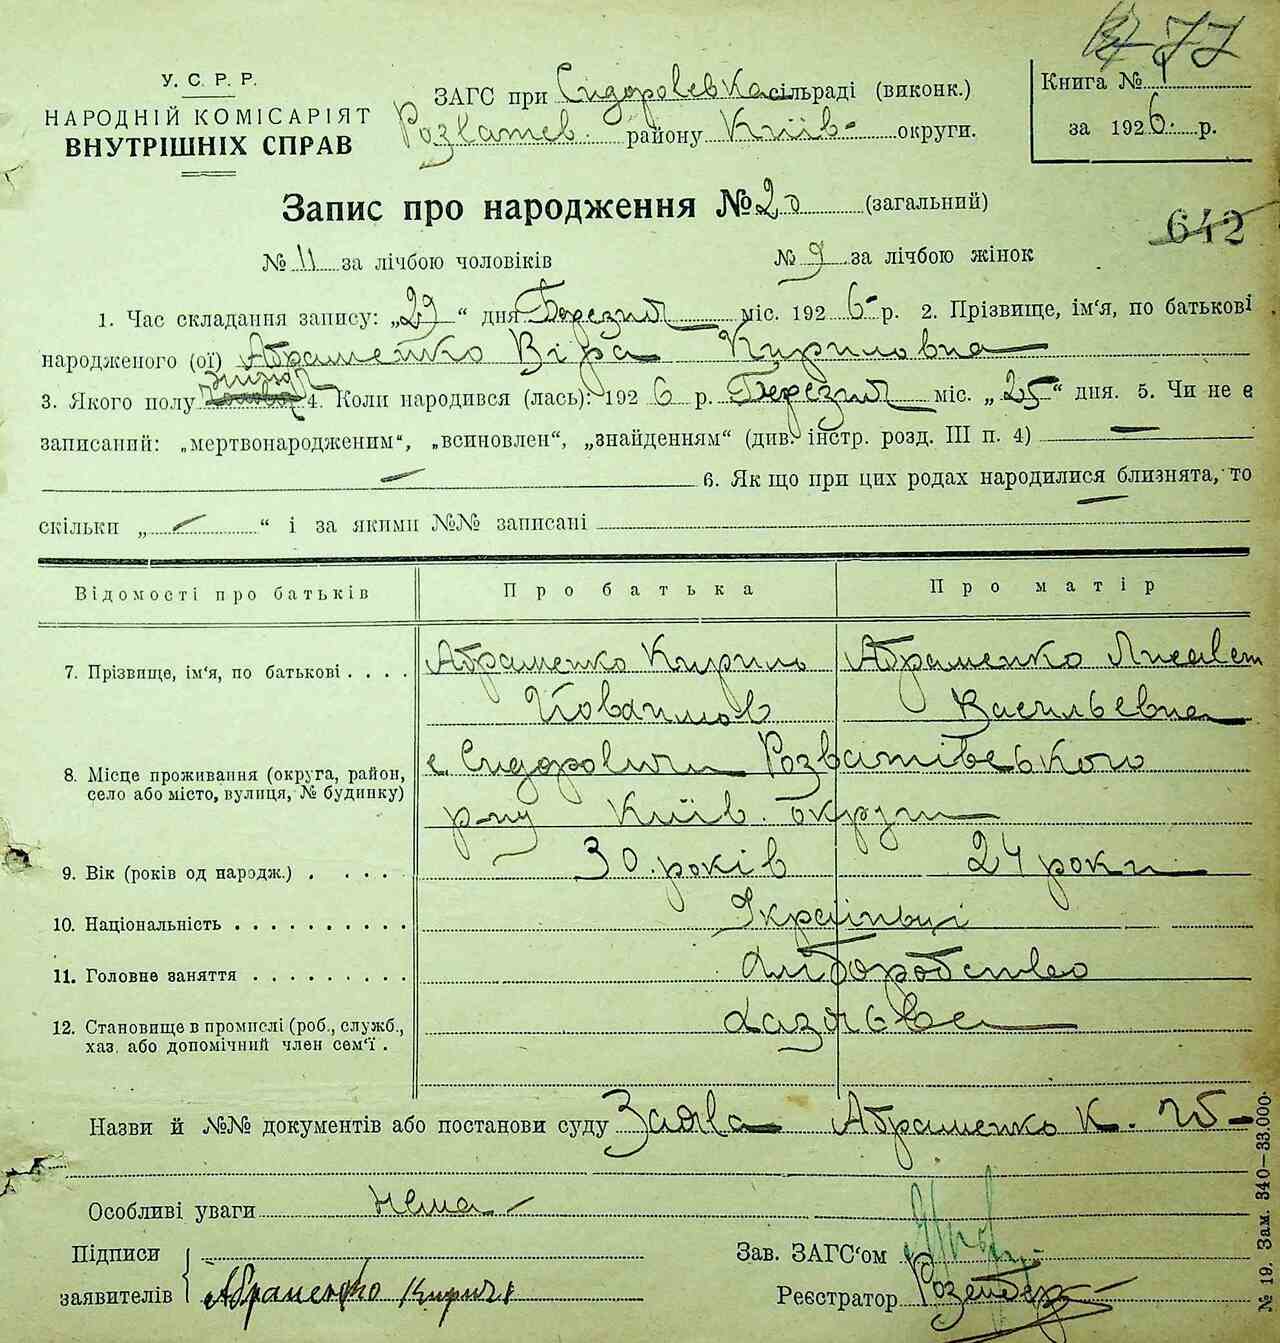 77
У. С. Р. Р.
НАРОДНІЙ КОМІСАРІЯТ
ВНУТРІШНІХ СПРАВ
ЗАГС при Сидоровській сільраді (виконк.)
Розватев. району Київ- округи.
Книга № 1
за 1926 р.
Запис про народження № 20 (загальний)
642
№ 11 за лічбою чоловіків № 9 за лічбою жінок
1. Час складання запису: „29“ дня Березня міс. 1926 р. 2. Прізвище, ім‘я, по батькові
народженого (ої) Абраменко Віра Кириловна
3. Якого полу жіноч 4. Коли народився (лась): 1926 р. Березня міс. „25“ дня. 5. Чи не є
записаний: „мертвонародженим“, „всиновлен“, „знайденням“ (див. інстр. розд. III п. 4) —
— 6. Як що при цих родах народилися близнята, то
скільки „ — “ і за якими №№ записані —
Відомості про батьків Про батька Про матір
7. Прізвище, ім‘я, по батькові . . . . Абраменко Кирило Абраменко Лисавет
Йовхимов Васильевна
8. Місце проживання (округа, район, с. Сидоровичи Розватівського
село або місто, вулиця, № будинку) р-ну Київ. округи
9. Вік (років од народж.) . . . . . 30 років 24 роки
10. Національність . . . . . . . . . . Українці
11. Головне заняття . . . . . . . . . Хліборобство
12. Становище в промислі (роб., служб.,
хаз. або допомічний член сем‘ї .
Назви й №№ документів або постанови суду Заява Абраменко К.
Особливі уваги нема
Підписи Зав. ЗАГС‘ом
заявителів Абраменко Кирил Реєстратор
№ 19. Зам. 340—33.000.